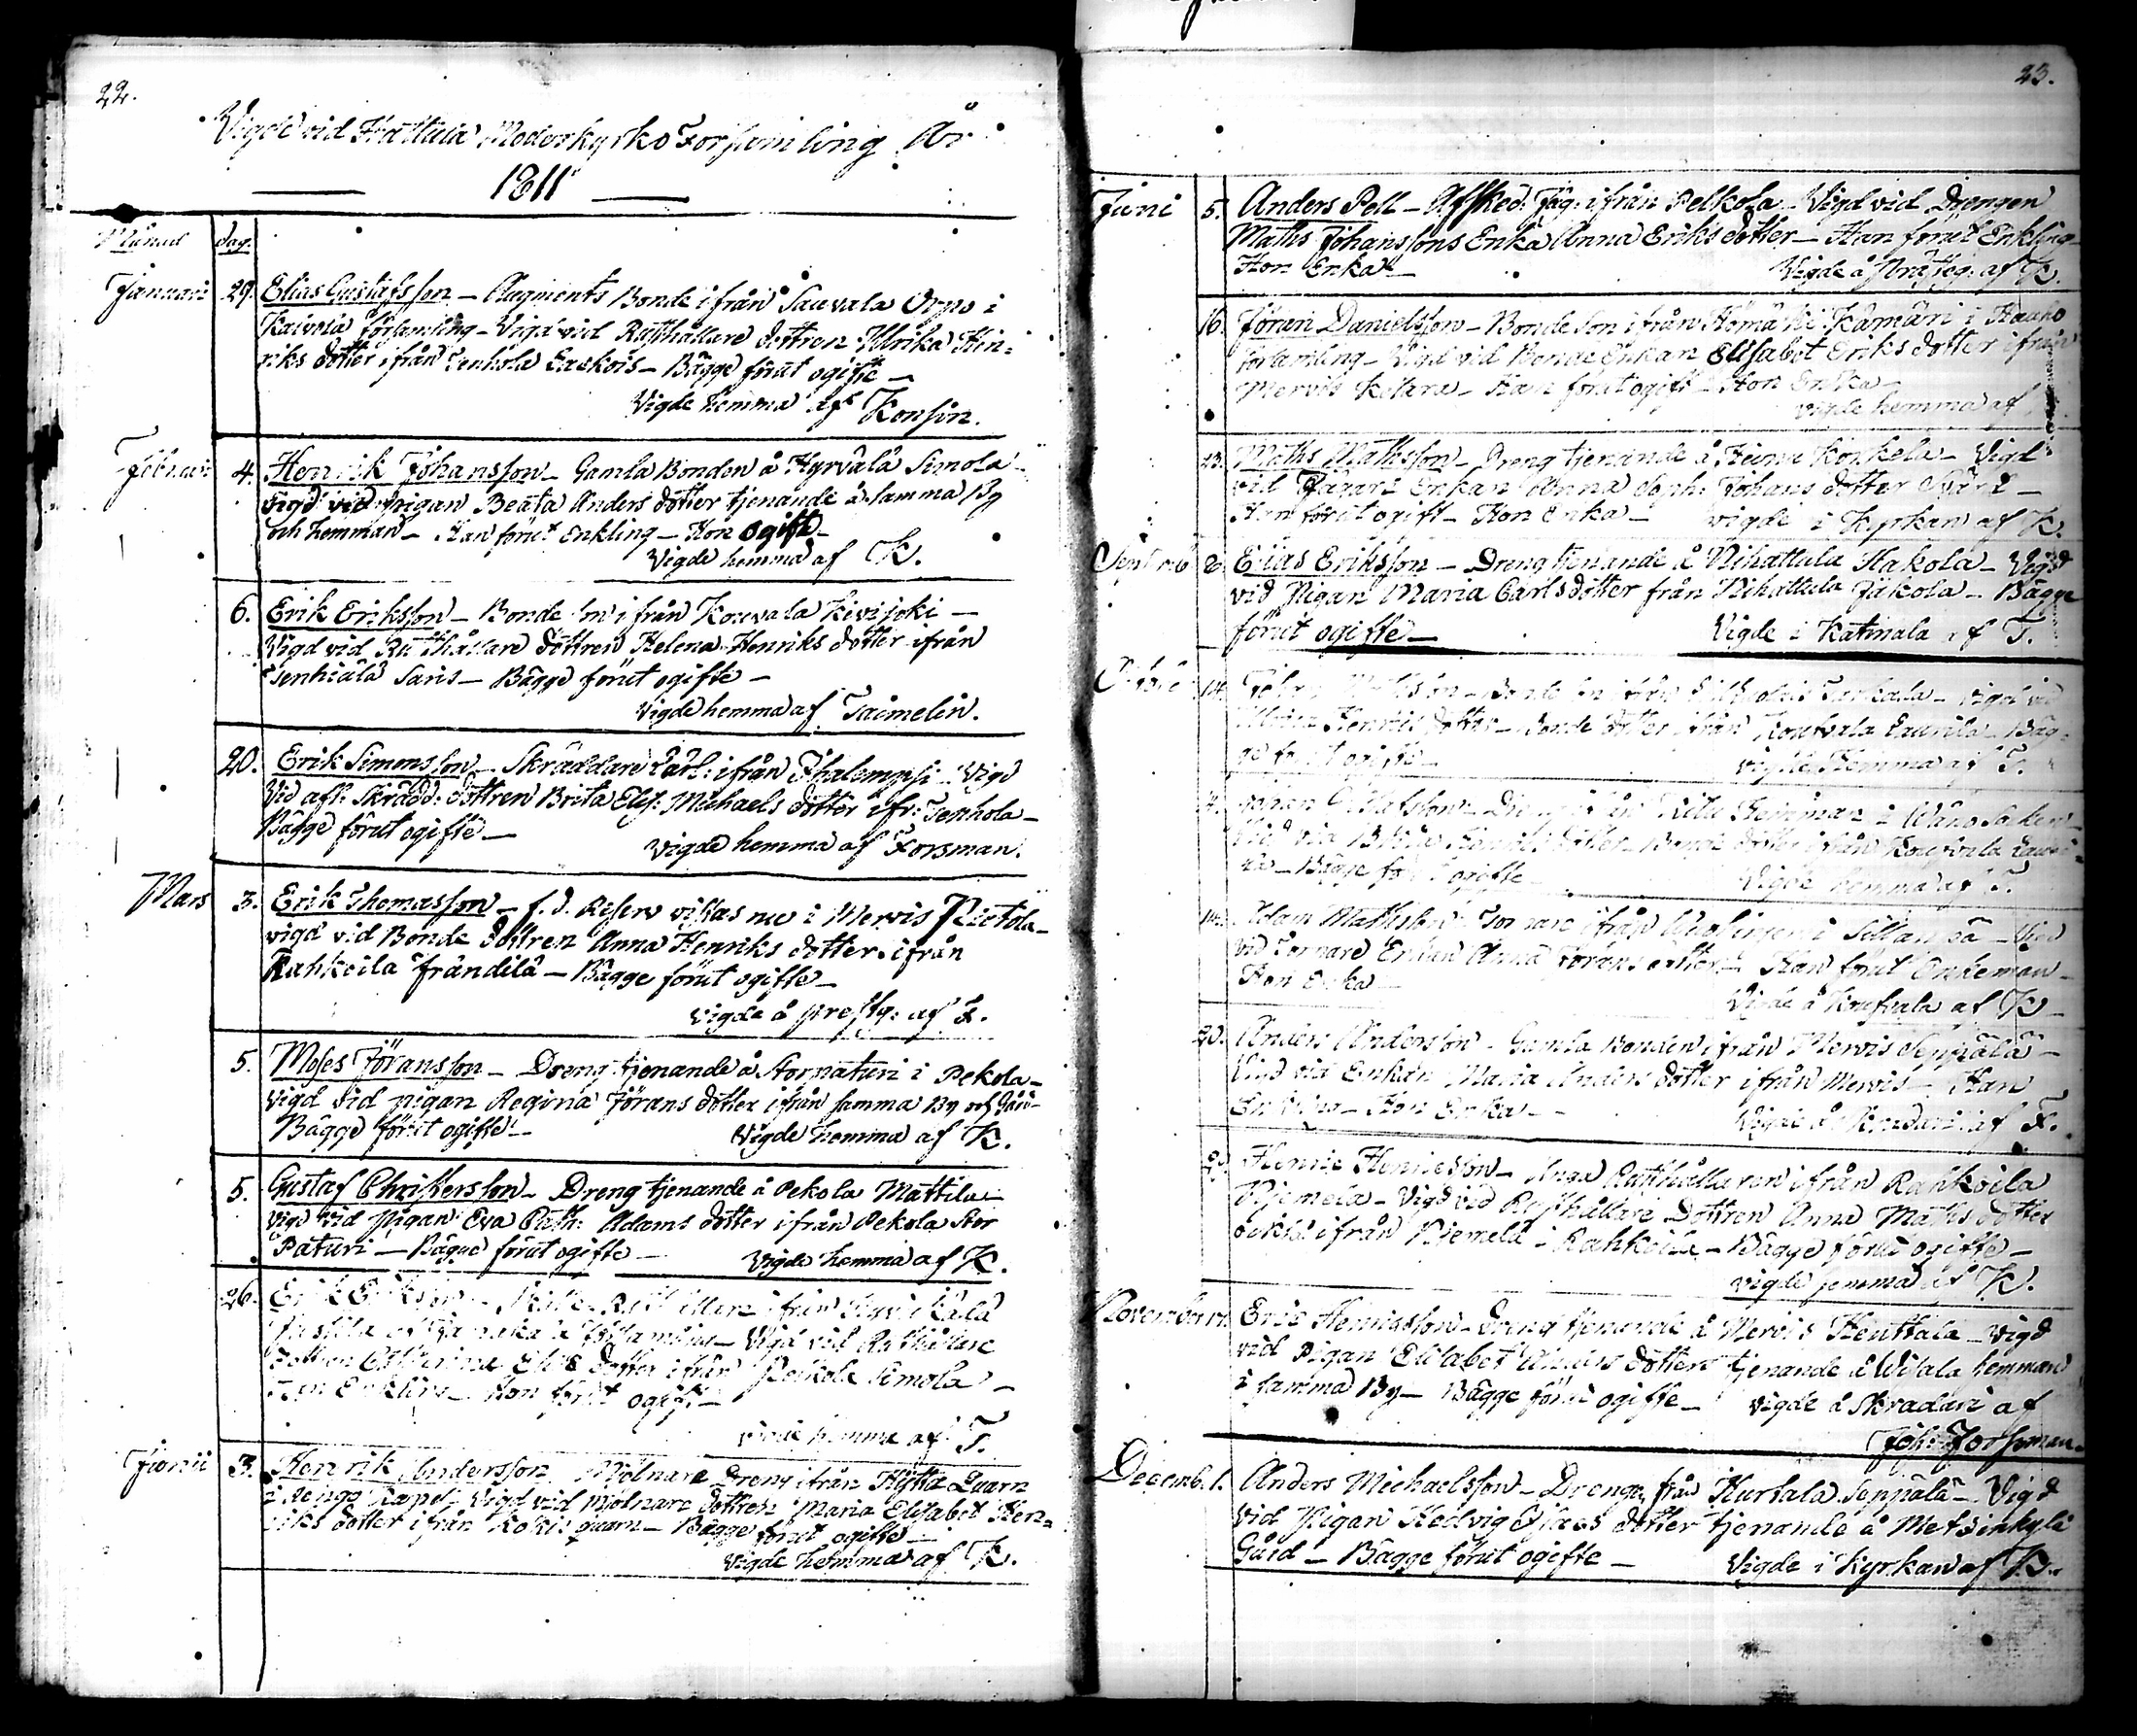 22.
Vigde vid Hattula Moderkyrko Församling År
1811
Månad dag.
Januari 29. Elias Gustafsson – Augments Bonde ifrån Sauvala Orpo i
Kaivola församling – Vigd vid Rusthållare dottren Ulrika Hin=
riks dotter ifrån Tenhola Eackois – Bägge förut ogifte –
Vigde hemma af Konsin.
Februari 4. Henrik Johansson – Gamla Bonden å Hyrvälä Simola
Vigd vid pigan Beata Anders dotter tjenande å samma By
och hemman – Han förut Enkling – Hon ogift –
Vigde hemma af K.
6. Erik Eriksson – Bonde son ifrån Kouvala Kivijoki –
Vigd vid Rusthållare dottren Helena Henriks dotter ifrån
Tenhiälä Saris – Bägge förut ogifte –
Vigde hemma af Taimelin.
20. Erik Simonsson – Skräddare Lärl: ifrån Ihalempsi Vigd
Vid afl: Skrädd: dottren Brita Elis: Michaels dotter ifr: Tenhola –
Bägge förut ogifte –
Vigde hemma af Forsman.
Mars 3. Erik Thomasson – f. d. Reserv vistas nu i Mervis Pietola –
vigd vid Bonde dottren Anna Henriks dotter ifrån
Rahkoila Frändilä – Bägge förut ogifte –
Vigde å prestg: af F.
5. Moses Jöransson – Dreng tjenande å Storpaturi i Pekola –
Vigd vid pigan Regina Jörans dotter ifrån samma By och Gård –
Bägge förut ogifte – Vigde hemma af K.
5. Gustaf Christersson – Dreng tjenande å Pekola Mattila –
Vigd vid Pigan Eva Cath: Adams dotter ifrån Pekola Stor
Paturi – Bägge förut ogifte – Vigde hemma af K.
26. Erik Eriksson – ifrån
församling – Vigd vid Rusthållare
dottren Catharina Eliæ dotter ifrån Pekola Simola –
Han Enkling – Hon förut ogift –
Vigde hemma af T.
Junii 3. Henrik Andersson Mjölnare Dreng ifrån Hytta Quarn
i Rengo Capel – Vigd vid Mjölnare dottren Maria Elisabet Hen=
riks dotter ifrån Kokis quarn – Bägge förut ogifte –
Vigde hemma af K.
23.
Juni 5. Anders Pell – Afsked: Jäg: ifrån Pelkola – Vigd vid Drengen
Maths Johanssons Enka Anna Eriks dotter – Han förut Enkling –
Hon Enka – Vigde å Prästeg: af K.
16. Jöran Danielsson – Bonde Son ifrån Kämäri i Hauho
församling – Vigd vid Bonde Enkan Elisabet Eriks dotter ifrån
Mervis Ketara – Han förut ogift – Hon Enka –
Vigde hemma af
23. Maths Mathsson – Dreng tjenande å Heinu Korkela – Vigd
vid Jägare Enkan Anna Soph: Johans dotter Svärd –
Han förut ogift – Hon Enka – Vigde i Kyrkan af K.
Septemb 6. Elias Eriksson – Dreng tjenande å Nihattula Hakola – Vigd
vid Pigan Maria Carlsdotter från Nihattula Jäkola – Bägge
förut ogifte – Vigde i Katinala af T.
Octobr 14. Johan Mathsson – Bonde son ifrån – Vigd vid
Henriks dotter – Bonde dotter ifrån Koufvala – Bäg=
ge förut ogifte – Vigde Hemma af T.
14. Johan – Dreng ifrån Hemman i Wåno Socken –
Vigd vid Henriks dotter – Bonde dotter ifrån Koufvala
– Bägge förut ogifte – Vigde hemma af T.
14. Adam Mathsson – Torpare ifrån i – Vigd
vid Torpare Enkan Anna Jörans dotter – Han förut Enkeman –
Hon Enka – Vigde å Koufvala af K –
20. Anders Andersson – Gamla Bonden ifrån Mervis Seppälä –
Vigd vid Enkan Maria Anders dotter ifrån Mervis – Han
Enkling – Hon Enka – Vigde å Skradari af F.
Henric Henricsson – Unga Rusthållaren ifrån Rahkoila
Niemelä – Vigd vid Rusthållare Dottren Anna Maths dotter
också ifrån Niemelä – Rahkoila – Bägge förut ogifte –
Vigde hemma af K.
November Eric Henricsson – Dreng tjenande å Mervis Heuttala – Vigd
vid Pigan Elisabet Anders dotter tjenande å Witala hemman
i samma By – Bägge förut ogifte – Vigde å Skradari af
Joh: Forsman.
Decemb. 1. Anders Michaelsson – Dreng från Hurtala Seppälä – Vigd
vid Pigan Hedvig Isacs dotter tjenande å Metsinkylä
Gård – Bägge förut ogifte – Vigde i Kyrkan af K.